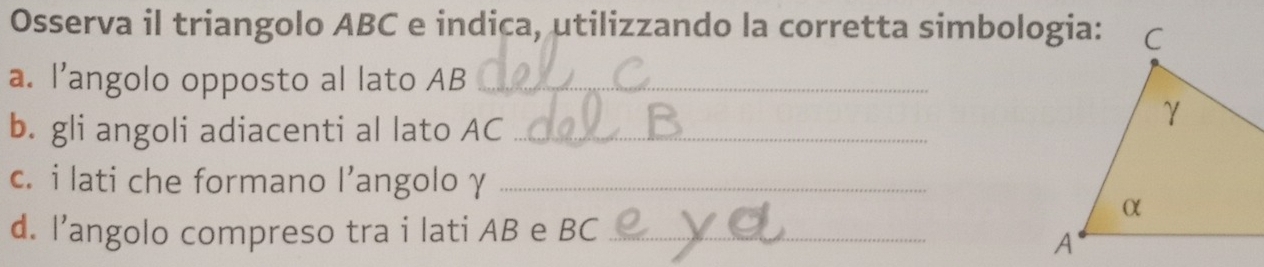 Osserva il triangolo ABC e indica, utilizzando la corretta simbologia:
a. l'angolo opposto al lato AB del C
b. gli angoli adiacenti al lato AC del B
c. i lati che formano l'angolo γ
d. l'angolo compreso tra i lati AB e BC e y a
C
γ
α
A